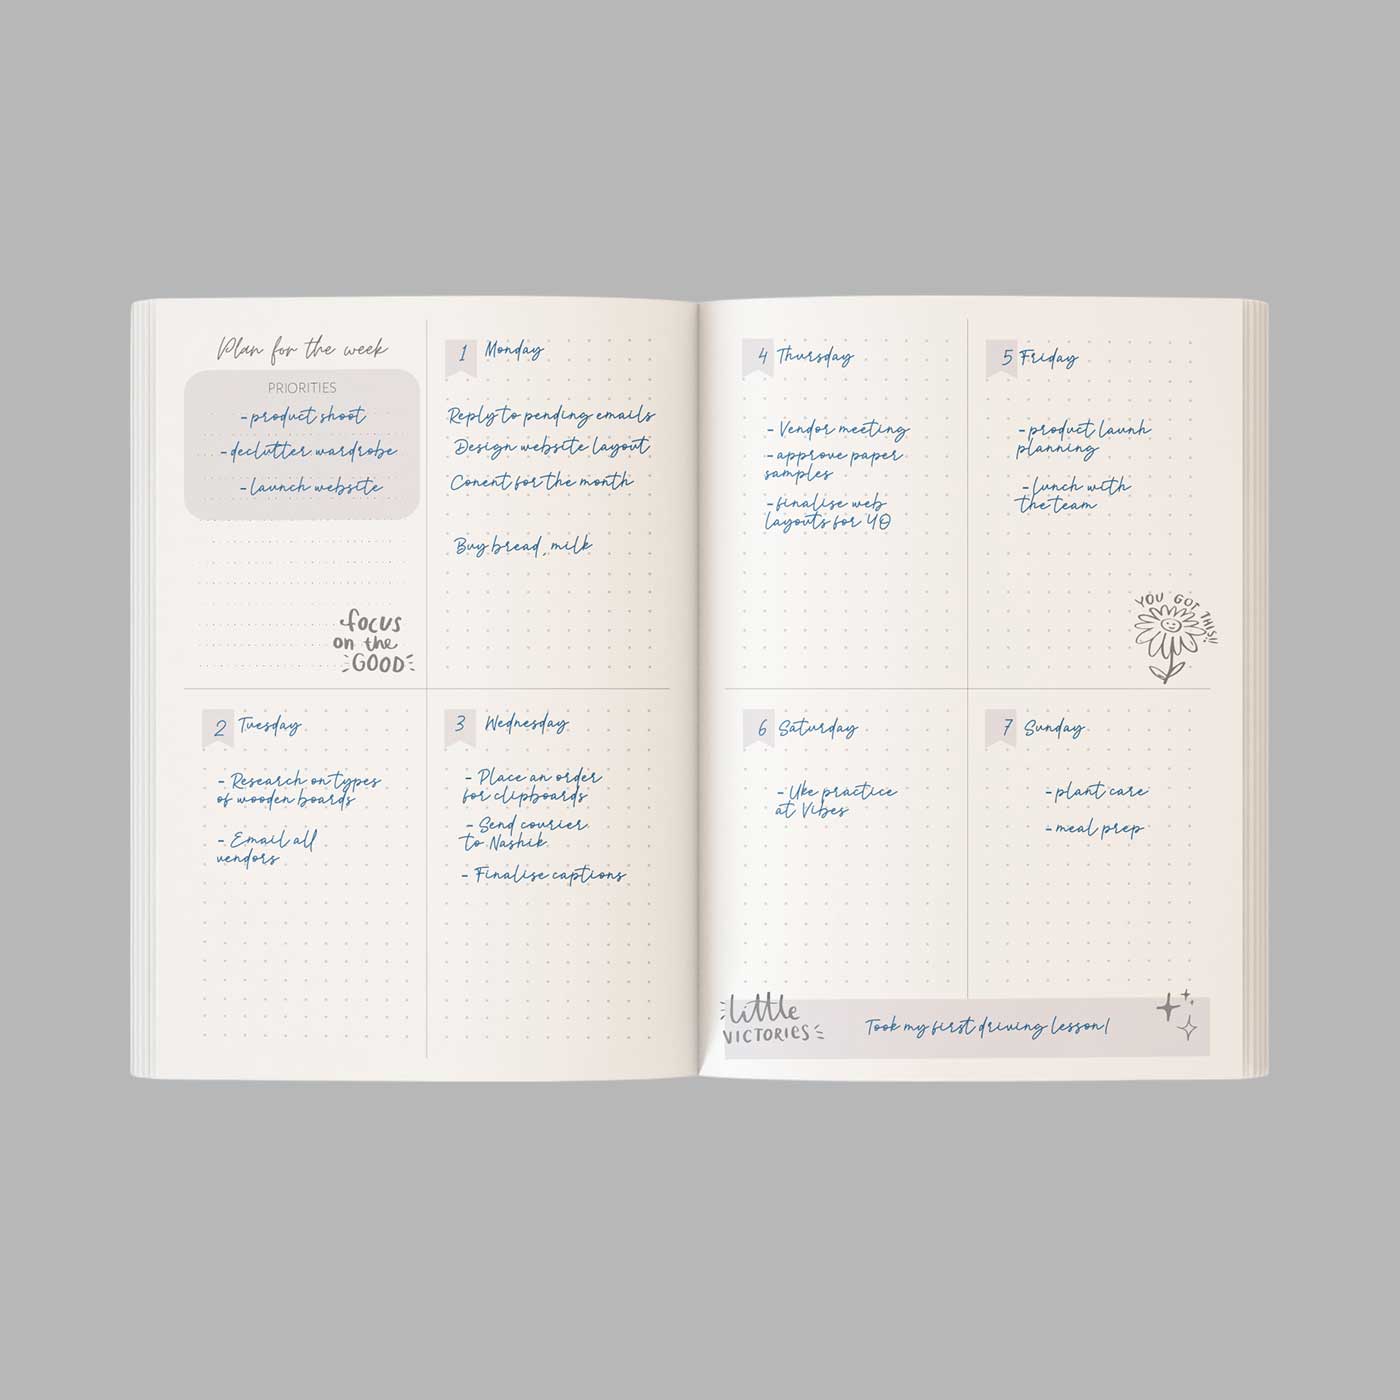 Plan for the week
PRIORITIES
- product shoot
- declutter wardrobe
- launch website
focus
on the
GOOD
1 Monday
Reply to pending emails
Design website layout
Conent for the month
Buy bread, milk
2 Tuesday
- Research on types
of wooden boards
- Email all
vendors
3 Wednesday
- Place an order
for clipboards
- Send courier
to Nashik
- Finalise captions
4 Thursday
- Vendor meeting
- approve paper
samples
- finalise web
layouts for YO
5 Friday
- product launh
planning
- lunch with
the team
YOU GOT THIS!!
6 Saturday
- Uke practice
at Vibes
7 Sunday
- plant care
- meal prep
little
VICTORIES
Took my first driving lesson!